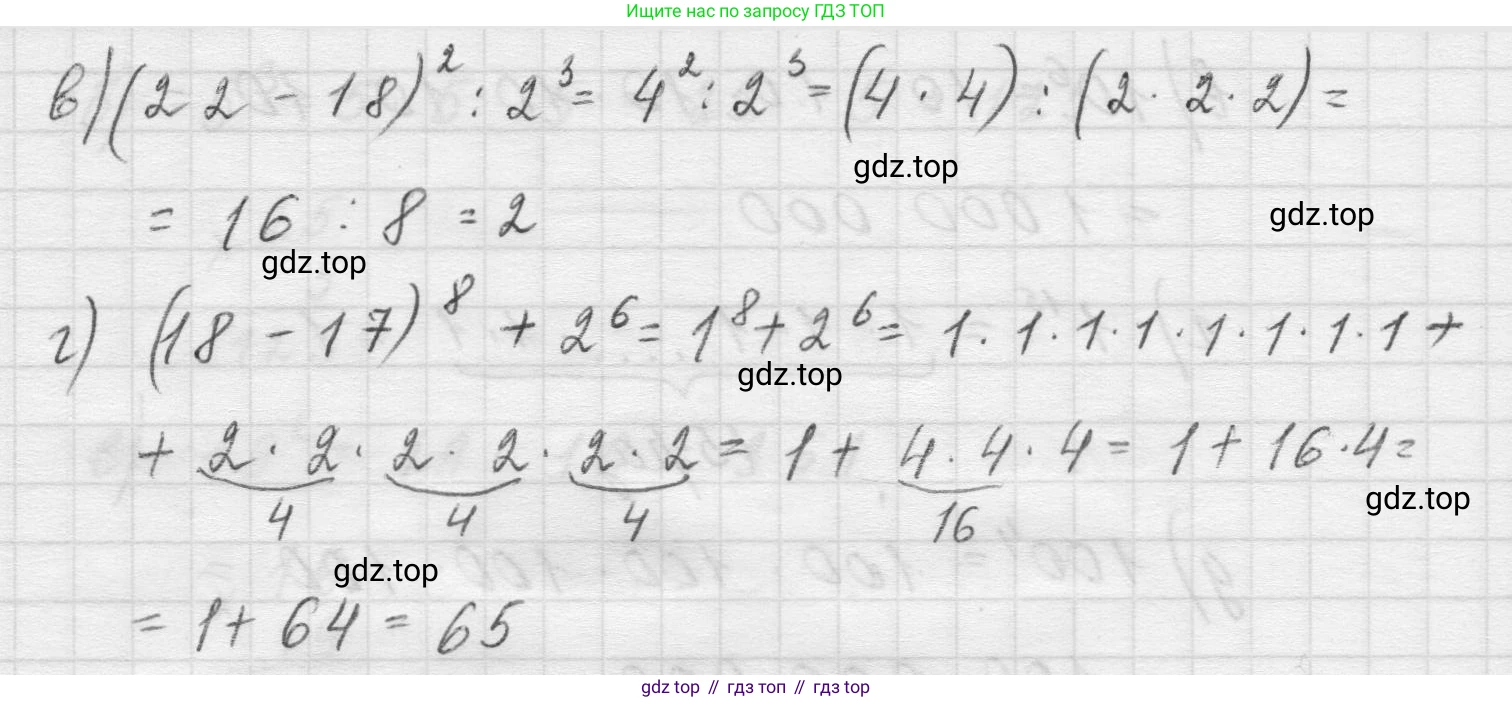 Ищите нас по запросу ГДЗ ТОП
в) (22 - 18)² : 2³ = 4² : 2³ = (4 · 4) : (2 · 2 · 2) =
gdz.top
= 16 : 8 = 2
gdz.top
gdz.top
г) (18 - 17)⁸ + 2⁶ = 1⁸ + 2⁶ = 1 · 1 · 1 · 1 · 1 · 1 · 1 · 1 +
gdz.top
+ 2 · 2 · 2 · 2 · 2 · 2 = 1 + 4 · 4 · 4 = 1 + 16 · 4 =
4 4 4 16
gdz.top
gdz.top
= 1 + 64 = 65
gdz top // гдз топ // гдз top